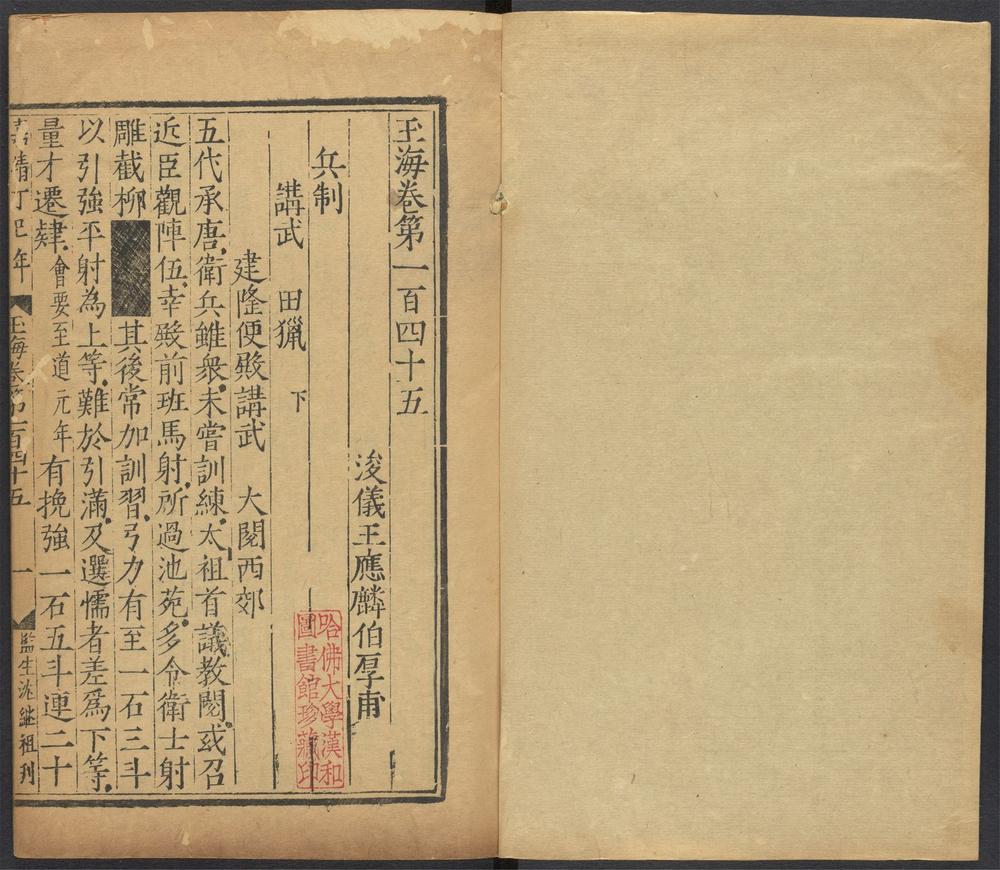 玉海卷第一百四十五
浚儀王應麟伯厚甫
兵制
講武 田獵 下
建隆便殿講武 大閱西郊
五代承唐衛兵雖衆未嘗訓練太祖首議教閱或召
近臣觀陣伍幸殿前班馬射所過池苑多令衛士射
雕截柳 其後常加訓習弓力有至一石三斗
以引強平射為上等難於引滿及選懦者差爲下等
量才遷肄會要至道元年有挽強一石五斗連二十
嘉靖丁巳年 玉海卷第一百四十五 一 監生沈繼祖刋
哈佛大學漢和
圖書館珍藏印